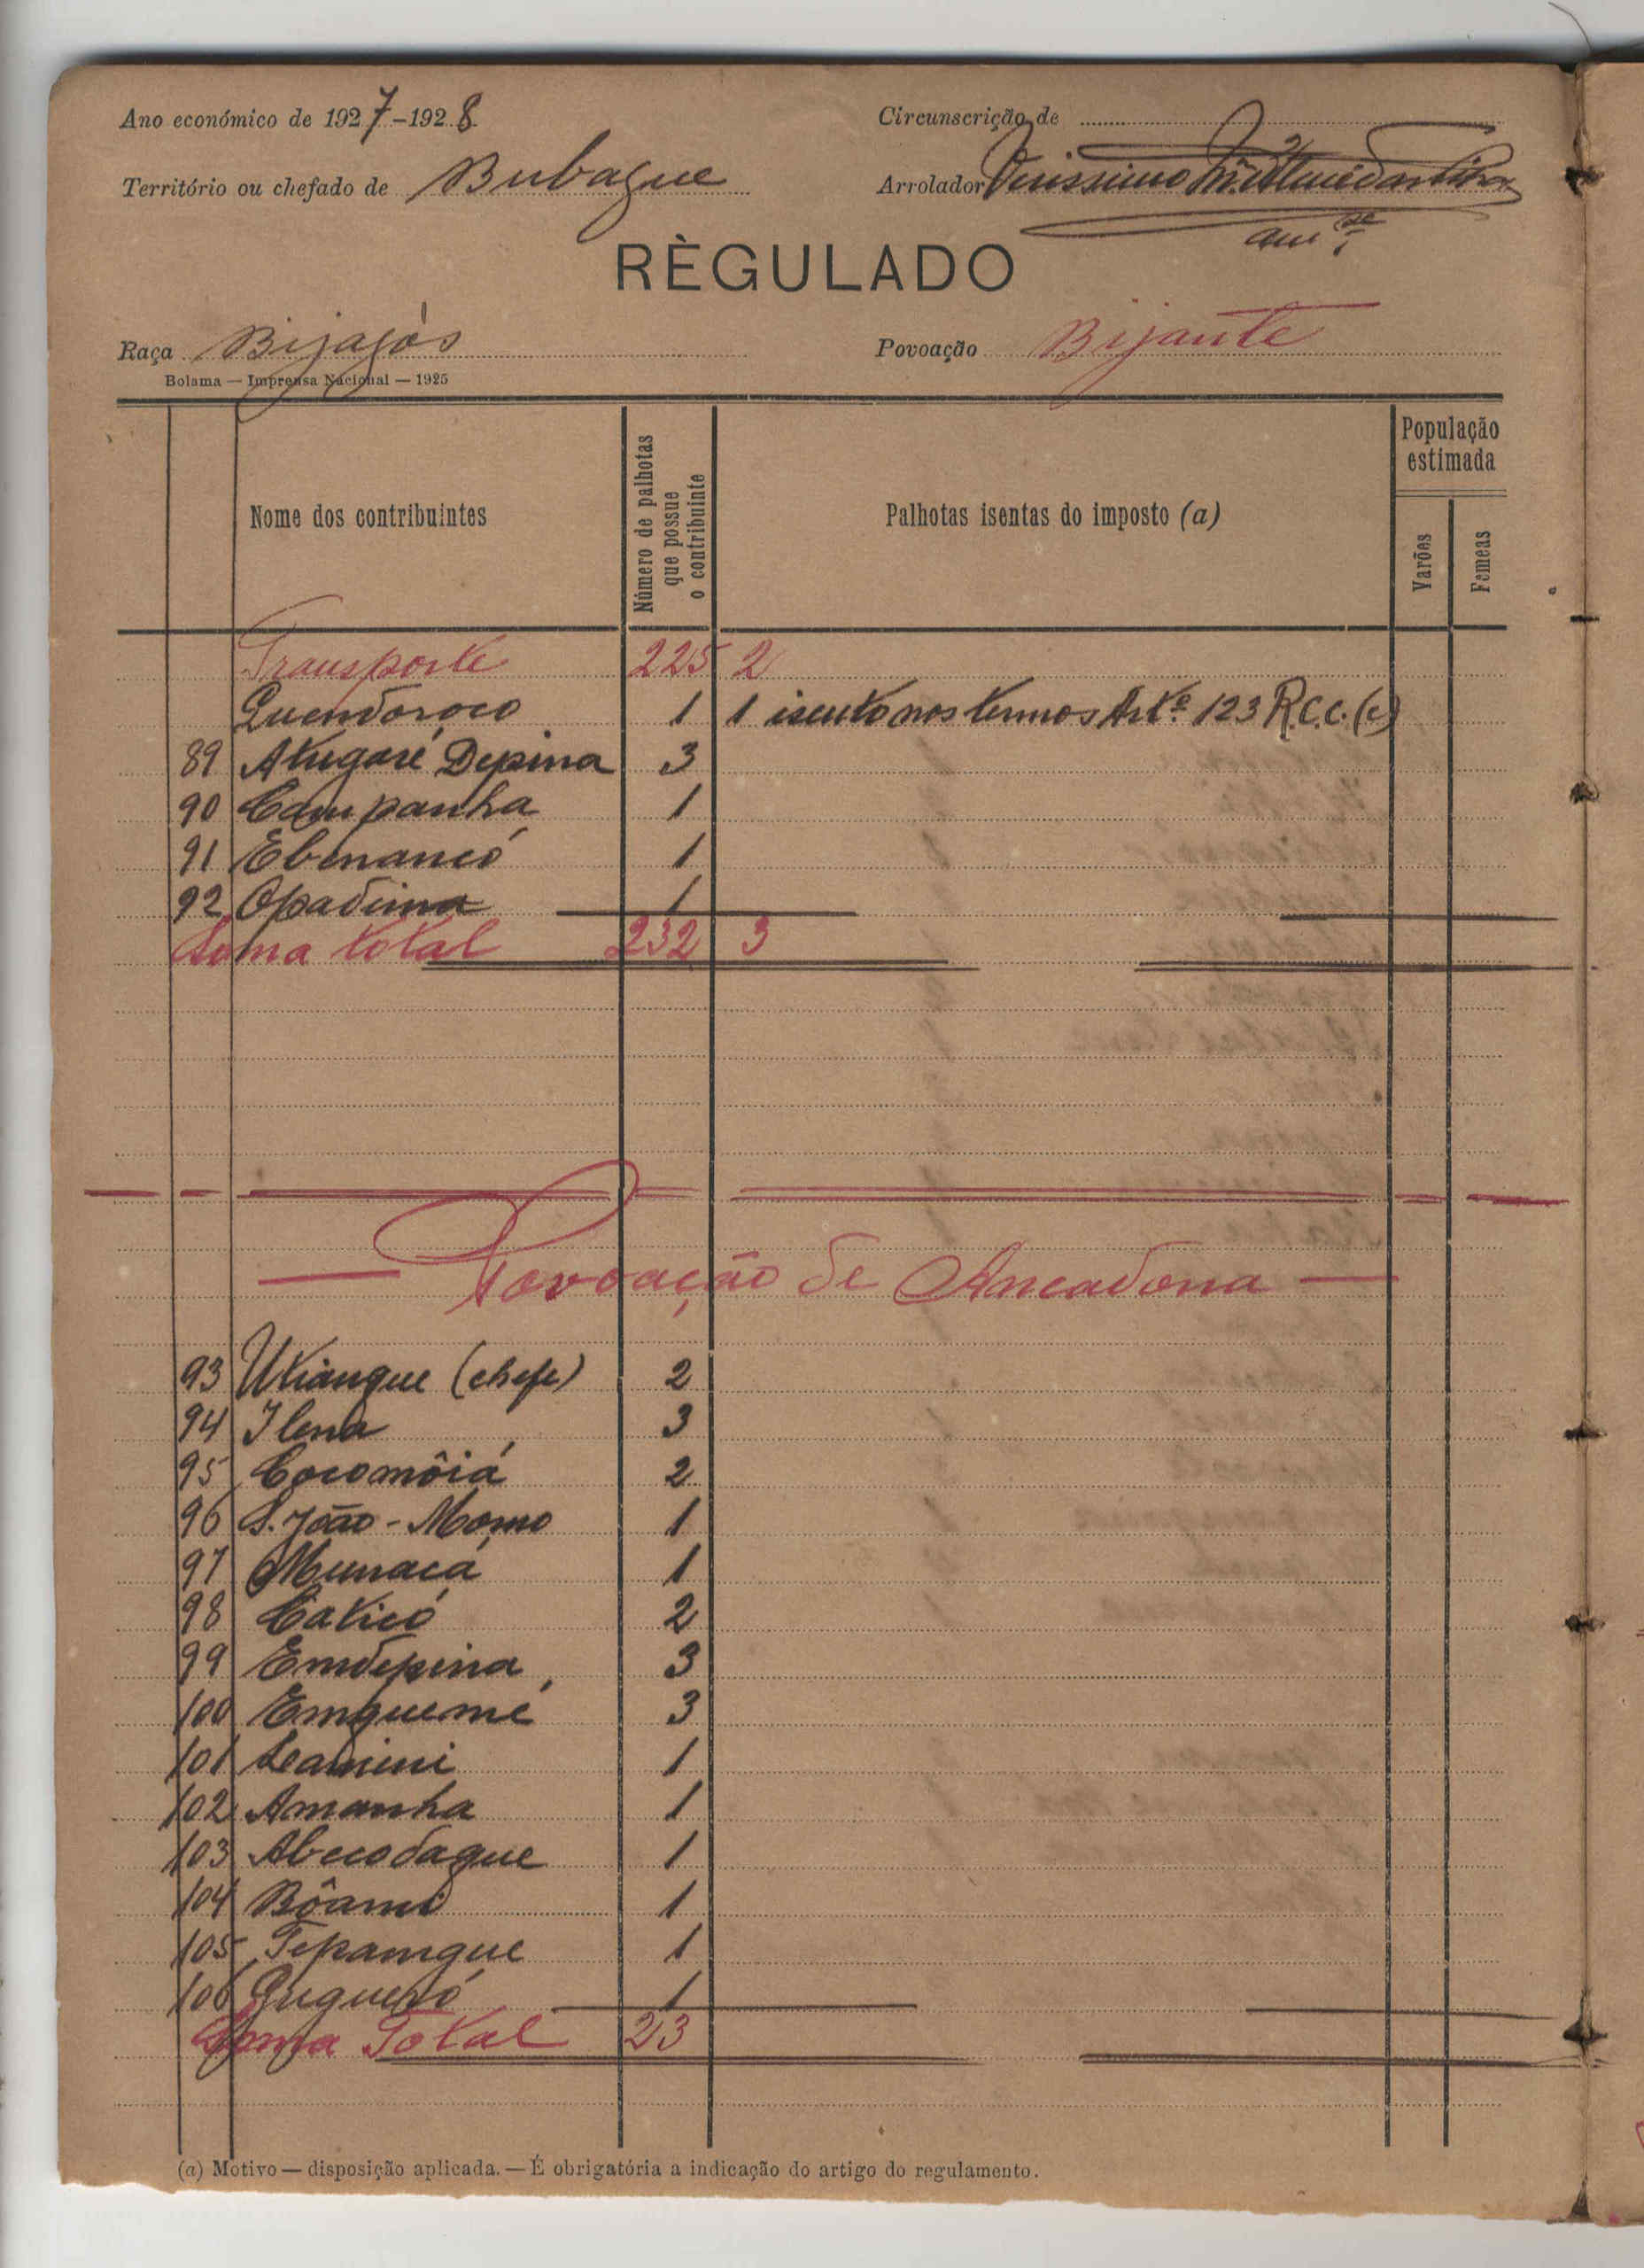 Ano económico de 1927-1928
Circunscrição de
Território ou chefado de Bubaque
Arrolador Verissimo
RÈGULADO
Raça Bijagós
Povoação Bijante
Bolama — Imprensa Nacional — 1925
Nome dos contribuintes
Número de palhotas que possue o contribuinte
Palhotas isentas do imposto (a)
População estimada
Varões
Femeas
Transporte 225 2
Quendoroco 1 1 isento nos termos Artº 123 R.C.C. (c)
89 Atugaré Depina 3
90 Campanha 1
91 Ebnancó 1
92 Opadima 1
Soma total 232 3
Povoação de Ancadona
93 Utiangue (chefe) 2
94 Ilena 3
95 Cocomôiá 2
96 S. João - Momo 1
97 Munacá 1
98 Caticó 2
99 Emdepina 3
100 Emguemé 3
101 Leanini 1
102 Amanha 1
103 Abecodaque 1
104 Bôami 1
105 Tepamgue 1
106 1
Soma Total 23
(a) Motivo — disposição aplicada. — É obrigatória a indicação do artigo do regulamento.